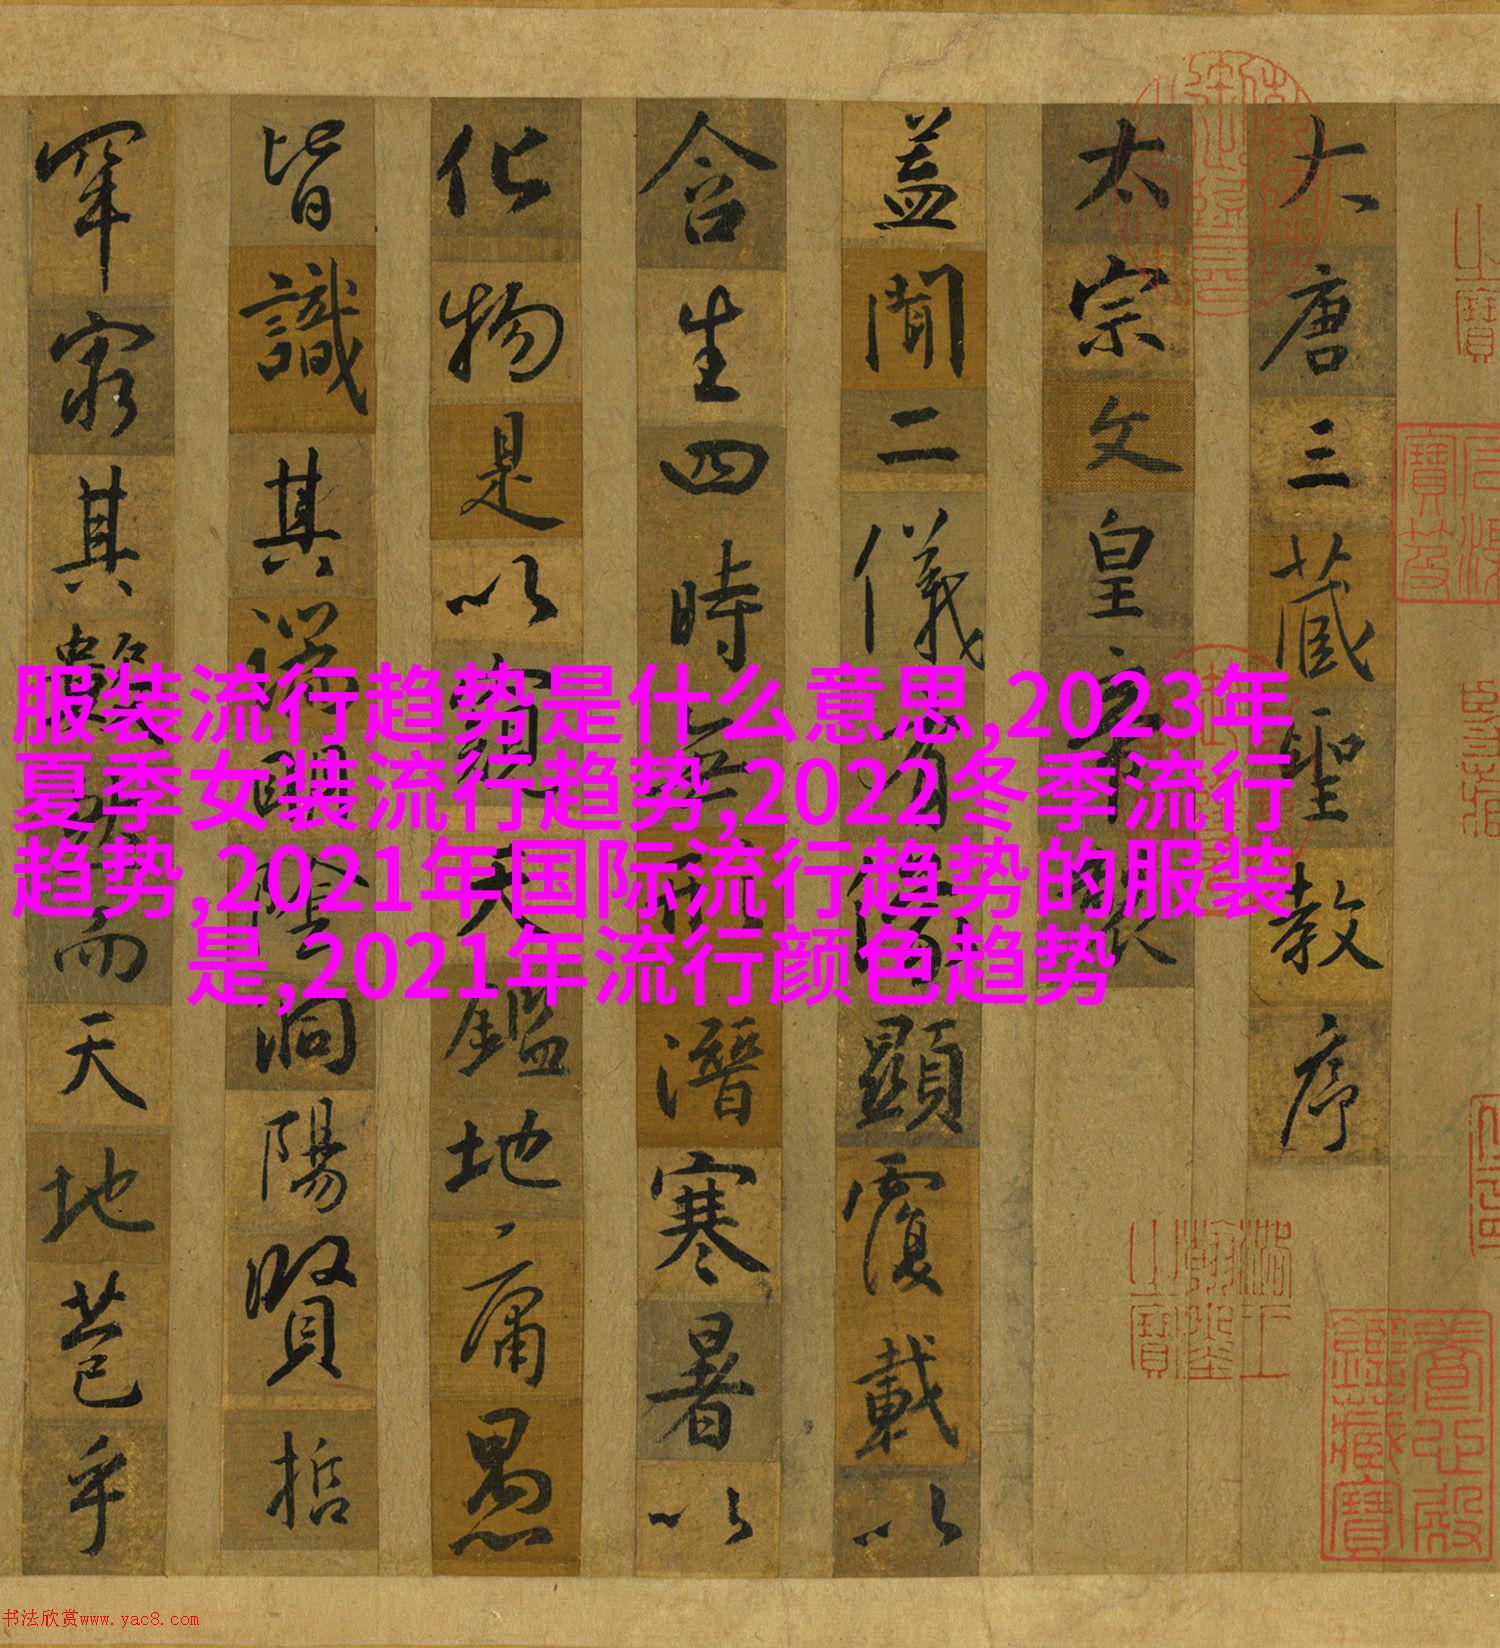 大唐三藏聖教序
太宗文皇帝製
蓋聞二儀有像顯覆載以
含生四時無形潛寒暑以
化物是以窺天鑑地庸愚
皆識其端明陰洞陽賢哲
罕窮其數然而天地苞乎
服装流行趋势是什么意思,2023年
夏季女装流行趋势,2022冬季流行
趋势,2021年国际流行趋势的服装
是,2021年流行颜色趋势
養心殿鑑藏寶
书法欣赏www.yac8.com